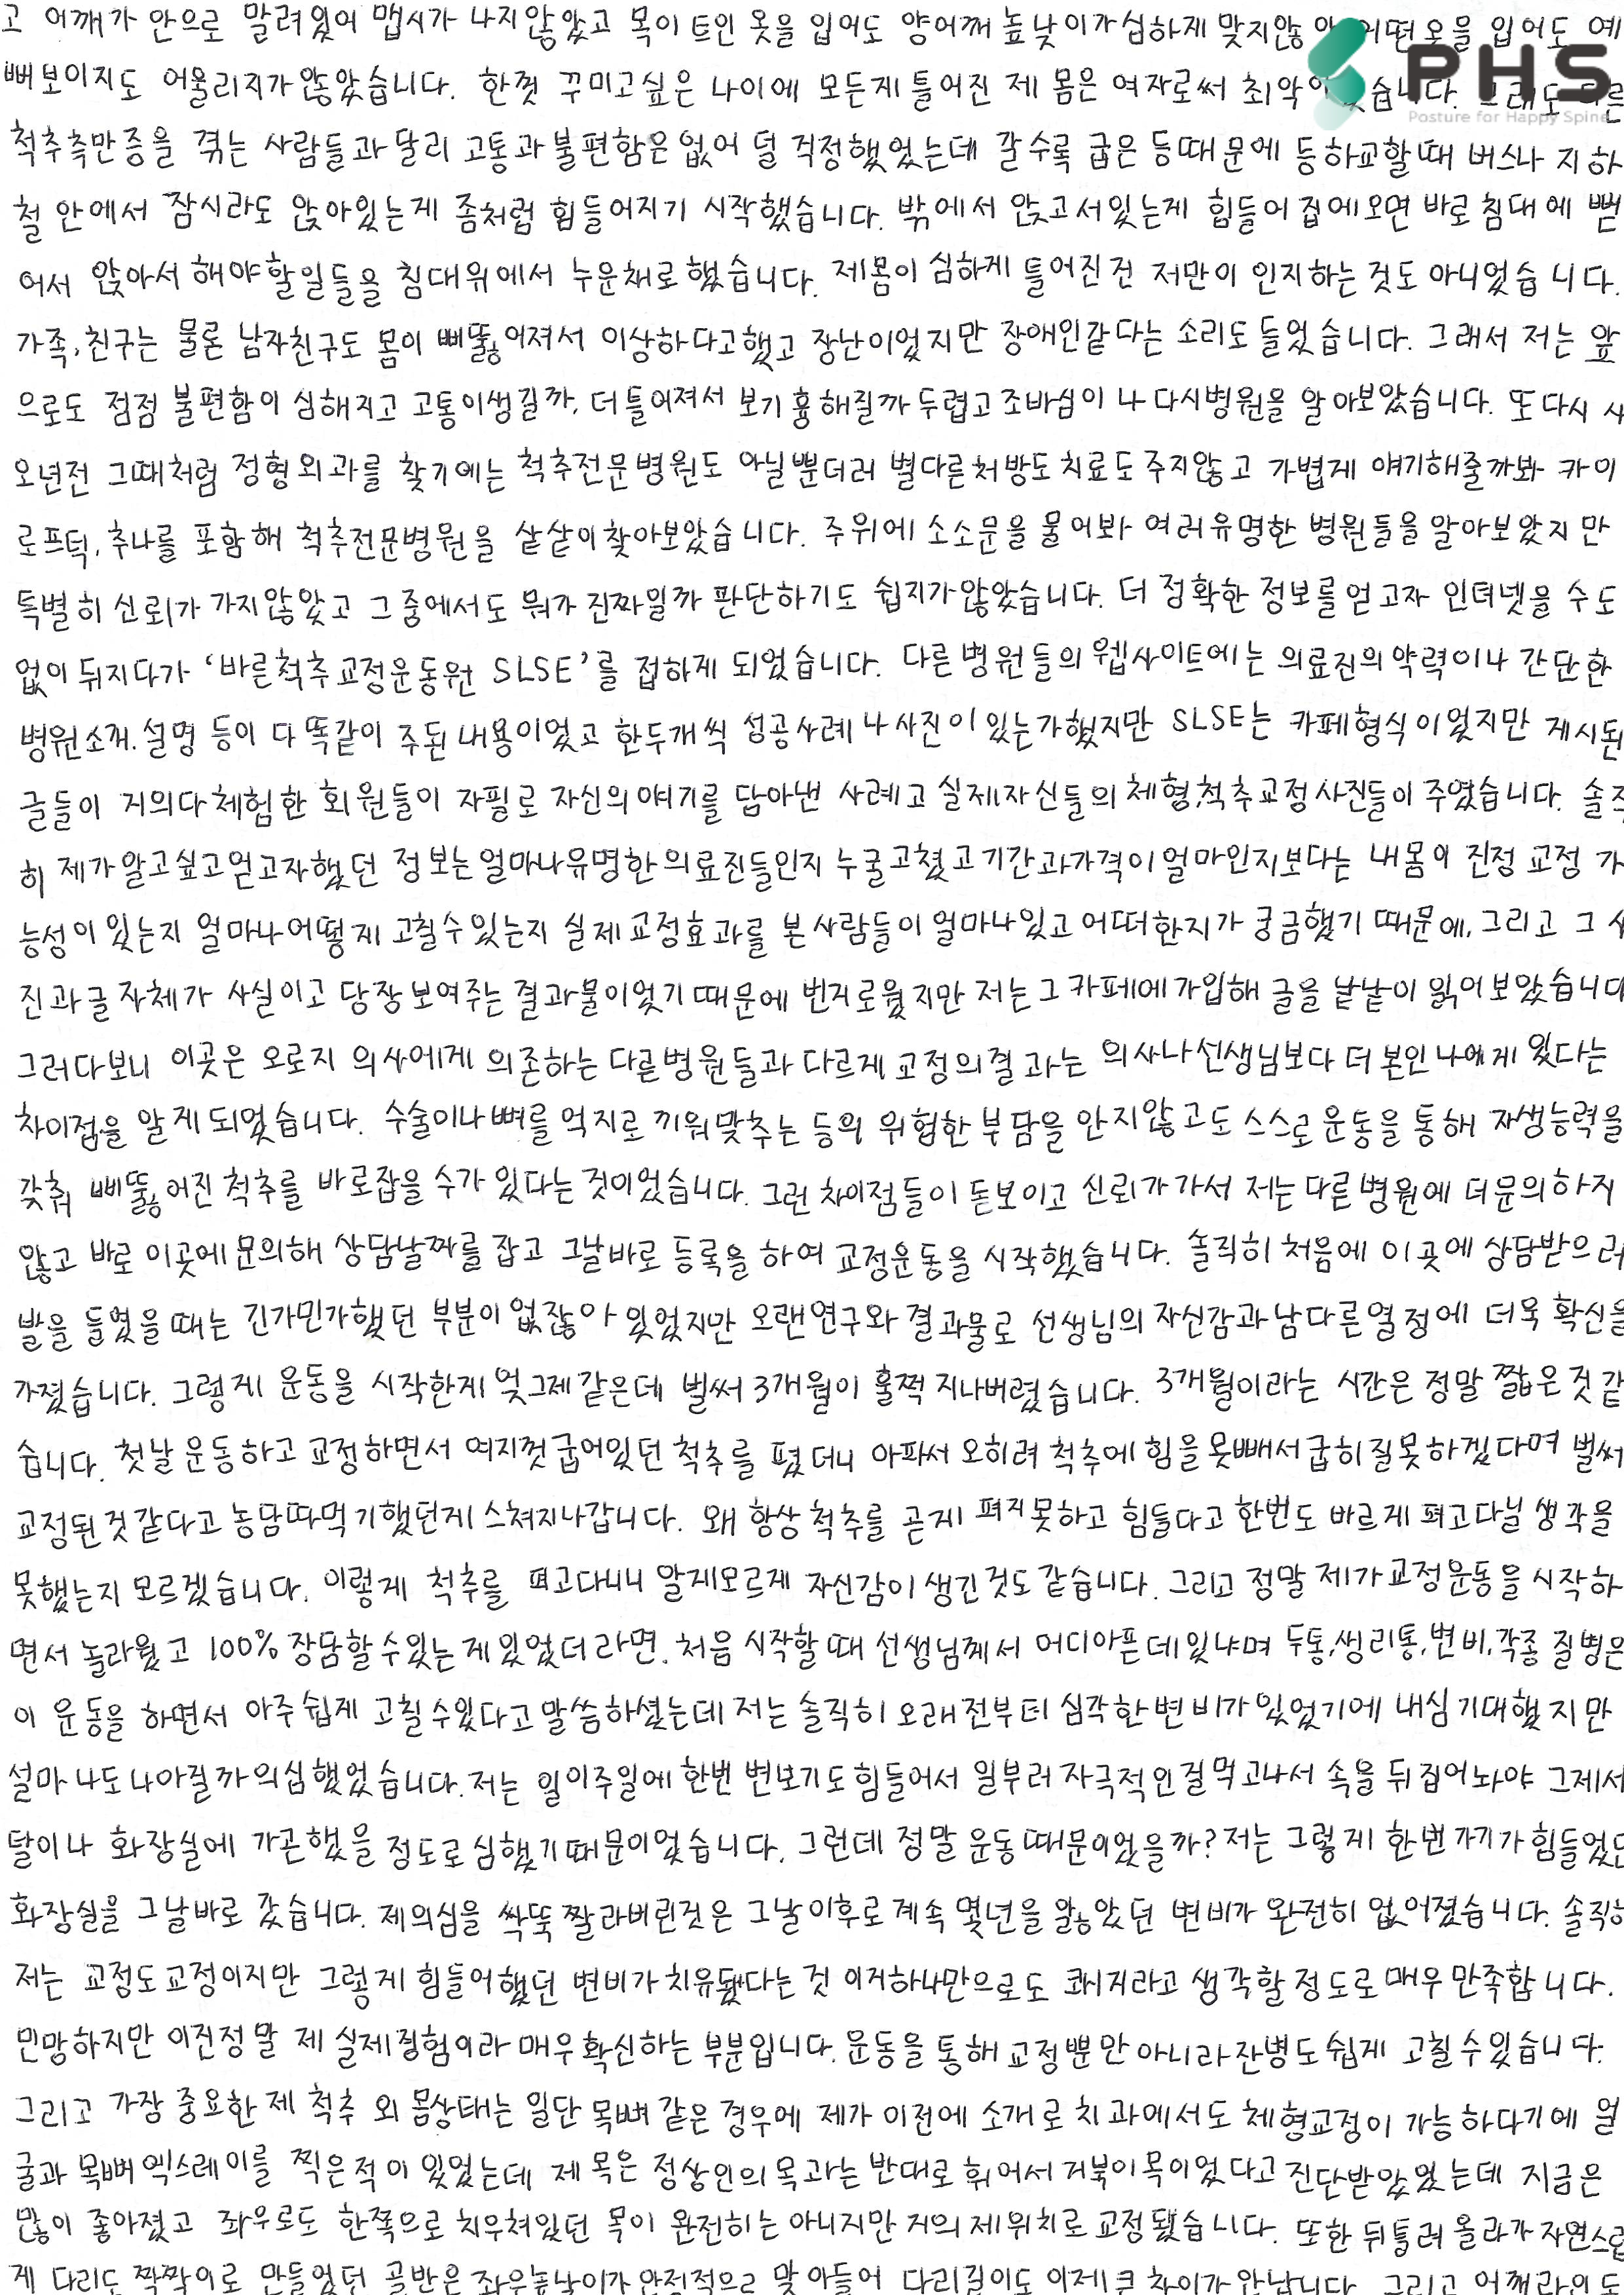 고 어깨가 안으로 말려있어 맵시가 나지않았고 목이 트인 옷을 입어도 양어깨 높낮이가 심하게 맞지않아 어떤옷을 입어도 예
PHS
Posture for Happy Spine
뻐보이지도 어울리지가 않았습니다. 한껏 꾸미고싶은 나이에 모든게 틀어진 제 몸은 여자로써 최악이었습니다. 그래도 다른
척추측만증을 겪는 사람들과 달리 고통과 불편함은 없어 덜 걱정했었는데 갈수록 굽은 등때문에 등하교할때 버스나 지하
철 안에서 잠시라도 앉아있는게 좀처럼 힘들어지기 시작했습니다. 밖에서 앉고서있는게 힘들어 집에오면 바로 침대에 뻗
어서 앉아서 해야할일들을 침대위에서 누운채로 했습니다. 제몸이 심하게 틀어진건 저만이 인지하는 것도 아니었습니다.
가족, 친구는 물론 남자친구도 몸이 삐뚫어져서 이상하다고했고 장난이었지만 장애인같다는 소리도 들었습니다. 그래서 저는 앞
으로도 점점 불편함이 심해지고 고통이생길까, 더 틀어져서 보기 흉해질까 두렵고 조바심이 나 다시병원을 알아보았습니다. 또다시 사
오년전 그때처럼 정형외과를 찾기에는 척추전문병원도 아닐뿐더러 별다른처방도 치료도 주지않고 가볍게 얘기해줄까봐 카이
로프턱, 추나를 포함해 척추전문병원을 샅샅이 찾아보았습니다. 주위에 소소문을 물어봐 여러유명한 병원들을 알아보았지만
특별히 신뢰가 가지않았고 그 중에서도 뭐가 진짜일까 판단하기도 쉽지가않았습니다. 더 정확한 정보를 얻고자 인터넷을 수도
없이 뒤지다가 '바른척추교정운동원 SLSE'를 접하게 되었습니다. 다른 병원들의 웹사이트에는 의료진의 약력이나 간단한
병원소개, 설명 등이 다 똑같이 주된 내용이었고 한두개씩 성공사례나 사진이 있는가했지만 SLSE는 카페형식이었지만 게시된
글들이 거의다 체험한 회원들이 자필로 자신의 얘기를 담아낸 사례고 실제자신들의 체형,척추교정사진들이 주였습니다. 솔직
히 제가 알고싶고 얻고자했던 정보는 얼마나유명한 의료진들인지 누굴고쳤고 기간과가격이 얼마인지보다는 내몸이 진정 교정 가
능성이 있는지 얼마나 어떻게 고칠수있는지 실제 교정효과를 본 사람들이 얼마나있고 어떠한지가 궁금했기 때문에, 그리고 그 사
진과 글 자체가 사실이고 당장보여주는 결과물이었기 때문에 번거로웠지만 저는 그 카페에 가입해 글을 낱낱이 읽어보았습니다
그러다보니 이곳은 오로지 의사에게 의존하는 다른병원들과 다르게 교정의결과는 의사나 선생님보다 더 본인 나에게 있다는
차이점을 알게 되었습니다. 수술이나 뼈를 억지로 끼워맞추는 등의 위험한 부담을 안지않고도 스스로 운동을 통해 재생능력을
갖춰 삐뚫어진 척추를 바로잡을 수가 있다는 것이었습니다. 그런 차이점들이 돋보이고 신뢰가 가서 저는 다른 병원에 더 문의하지
않고 바로 이곳에 문의해 상담날짜를 잡고 그날바로 등록을 하여 교정운동을 시작했습니다. 솔직히 처음에 이곳에 상담받으러
발을 들였을 때는 긴가민가했던 부분이 없잖아 있었지만 오랜연구와 결과물로 선생님의 자신감과 남다른 열정에 더욱 확신을
가졌습니다. 그렇게 운동을 시작한게 엊그제 같은데 벌써 3개월이 훌쩍 지나버렸습니다. 3개월이라는 시간은 정말 짧은 것 같
습니다. 첫날 운동하고 교정하면서 여지껏 굽어있던 척추를 폈더니 아파서 오히려 척추에 힘을 못빼서 굽히질못하겠다며 벌써
교정된 것 같다고 농담따먹기했던게 스쳐지나갑니다. 왜 항상 척추를 곧게 펴지못하고 힘들다고 한번도 바르게 펴고다닐 생각을
못했는지 모르겠습니다. 이렇게 척추를 펴고다니니 알게모르게 자신감이 생긴것도 같습니다. 그리고 정말 제가 교정운동을 시작하
면서 놀라웠고 100% 장담할수있는게 있었더라면, 처음 시작할때 선생님께서 어디아픈데있냐며 두통,생리통,변비,각종 질병은
이 운동을 하면서 아주 쉽게 고칠수있다고 말씀하셨는데 저는 솔직히 오래전부터 심각한 변비가 있었기에 내심 기대했지만
설마 나도 나아질까 의심했었습니다. 저는 일이주일에 한번 변보기도 힘들어서 일부러 자극적인걸 먹고나서 속을 뒤집어놔야 그제서
달이나 화장실에 가곤했을 정도로 심했기때문이었습니다. 그런데 정말 운동때문이었을까? 저는 그렇게 한번가기가 힘들었던
화장실을 그날바로 갔습니다. 제의심을 싹뚝 짤라버린것은 그날이후로 계속 몇년을 앓았던 변비가 완전히 없어졌습니다. 솔직히
저는 교정도교정이지만 그렇게 힘들어했던 변비가 치유됐다는 것 이거하나만으로도 쾌거라고 생각할정도로 매우 만족합니다.
민망하지만 이건정말 제 실제경험이라 매우확신하는 부분입니다. 운동을 통해 교정뿐만 아니라 잔병도 쉽게 고칠수있습니다.
그리고 가장 중요한 제 척추 외 몸상태는 일단 목뼈 같은 경우에 제가 이전에 소개로 치과에서도 체형교정이 가능하다기에 얼
굴과 목뼈 엑스레이를 찍은적이 있었는데 제 목은 정상인의 목과는 반대로 휘어서 거북이목이었다고 진단받았었는데 지금은
많이 좋아졌고 좌우로도 한쪽으로 치우쳐있던 목이 완전히는 아니지만 거의 제위치로 교정됐습니다. 또한 뒤틀려 올라가 자연스럽
게 다리도 짝짝이로 만들었던 골반은 좌우높낮이가 안정적으로 맞아들어 다리길이도 이제 큰 차이가 안납니다. 그리고 어깨라인도